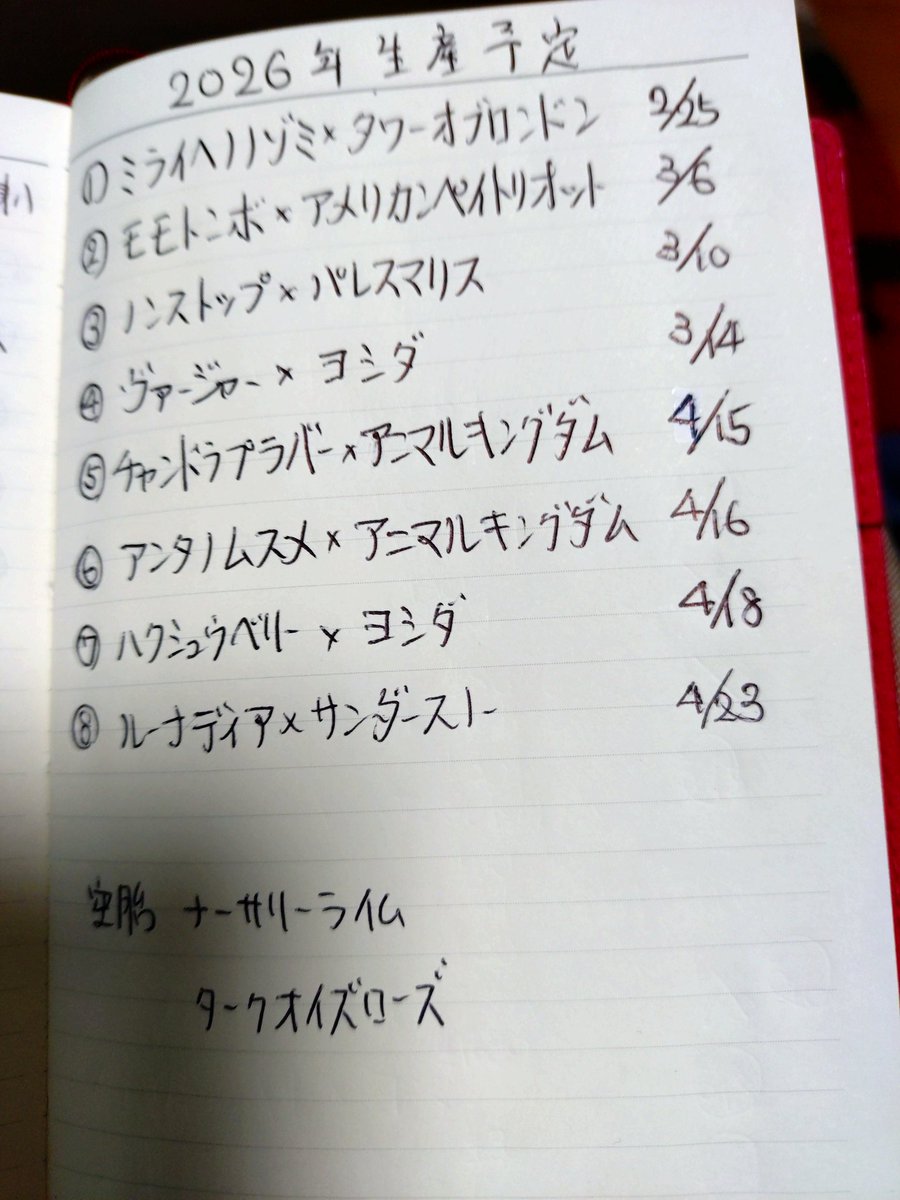 2026年生産予定
① ミライヘノノゾミ×タワーオブロンドン 2/25
② モモトンボ×アメリカンペイトリオット 3/6
③ ノンストップ×パレスマリス 3/10
④ ヴァージャー×ヨシダ 3/14
⑤ チャンドラプラバー×アニマルキングダム 4/15
⑥ アンタノムスメ×アニマルキングダム 4/16
⑦ ハクシュウベリー×ヨシダ 4/18
⑧ ルーナディア×サンダースノー 4/23
空胎 ナーサリーライム
タークオイズローズ